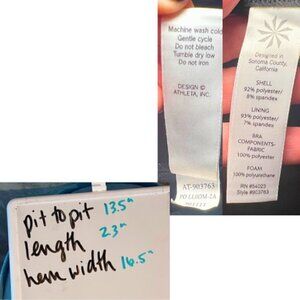 Machine wash cold
Gentle cycle
Do not bleach
Tumble dry low
Do not iron
DESIGN ©
ATHLETA, INC.
AT-903763
Designed in
Sonoma County,
California
SHELL
92% polyester/
8% spandex
LINING
93% polyester/
7% spandex
BRA
COMPONENTS-
FABRIC
100% polyester
FOAM
100% polyurethane
RN #54023
Style #903763
pit to pit 13.5"
length 23"
hem width 16.5"